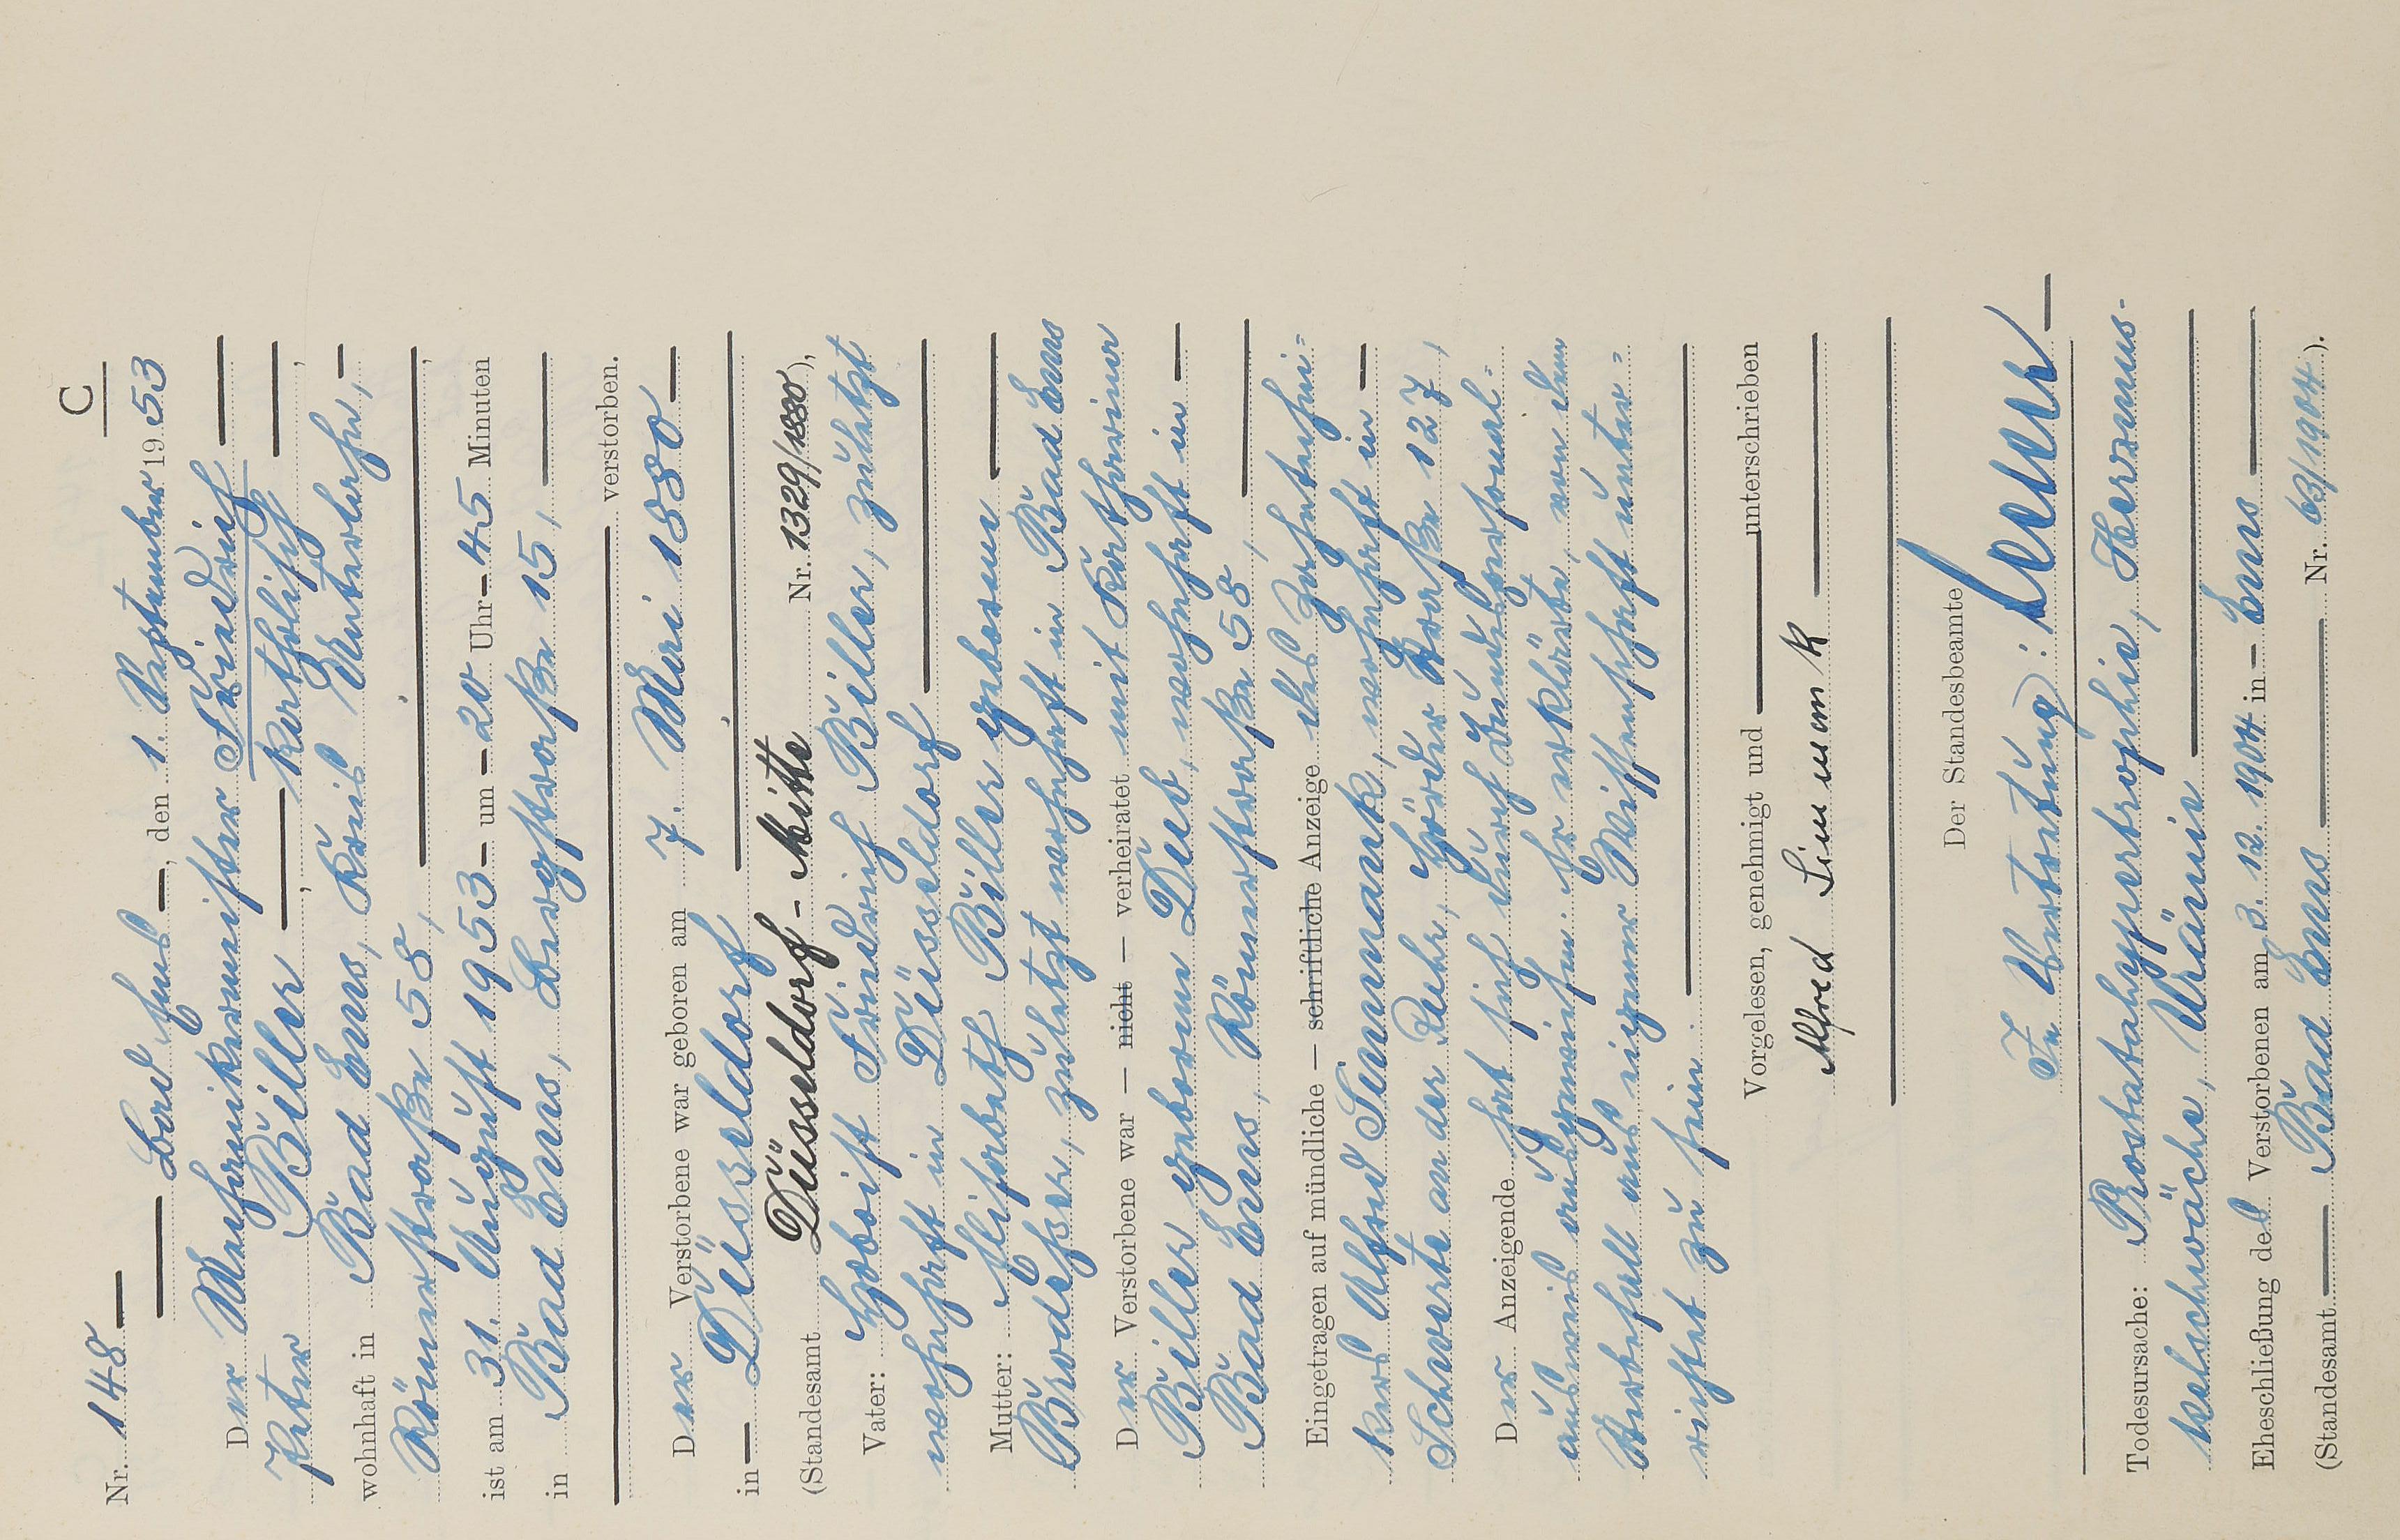 C
Nr. 148
Bad Ems, den 1. September 1953
Der Mechanikermeister Friedrich
Peter Biller, katholisch,
wohnhaft in Bad Ems, Kreis Unterlahn,
Römerstraße 58,
ist am 31. August 1953 um 20 Uhr 45 Minuten
in Bad Ems, Bergstraße 15,
verstorben.
Der Verstorbene war geboren am 7. Mai 1880
in Düsseldorf
(Standesamt Düsseldorf-Mitte Nr. 1329/1880),
Vater: Hoboist Friedrich Biller, zuletzt
wohnhaft in Düsseldorf
Mutter: Elisabeth Biller geborene
Brodesser, zuletzt wohnhaft in Bad Ems
Der Verstorbene war — nicht — verheiratet mit Katharina
Biller geborene Deb, wohnhaft in
Bad Ems, Römerstraße 58,
Eingetragen auf mündliche — schriftliche Anzeige des Zahntechni=
kers Alfred Linnmank, wohnhaft in
Schwerte an der Ruhr, Hörder Straße 127,
Der Anzeigende hat sich durch Bundespersonal=
ausweis ausgewiesen. Er erklärte, von dem
Sterbefall aus eigener Wissenschaft unter=
richtet zu sein.
Vorgelesen, genehmigt und unterschrieben
Alfred
Der Standesbeamte
In Vertretung:
Todesursache: Prostatahypertrophie, Herzmus-
kelschwäche, Urämie
Eheschließung des Verstorbenen am 3. 12. 1904 in Ems
(Standesamt Bad Ems Nr. 63/1904).